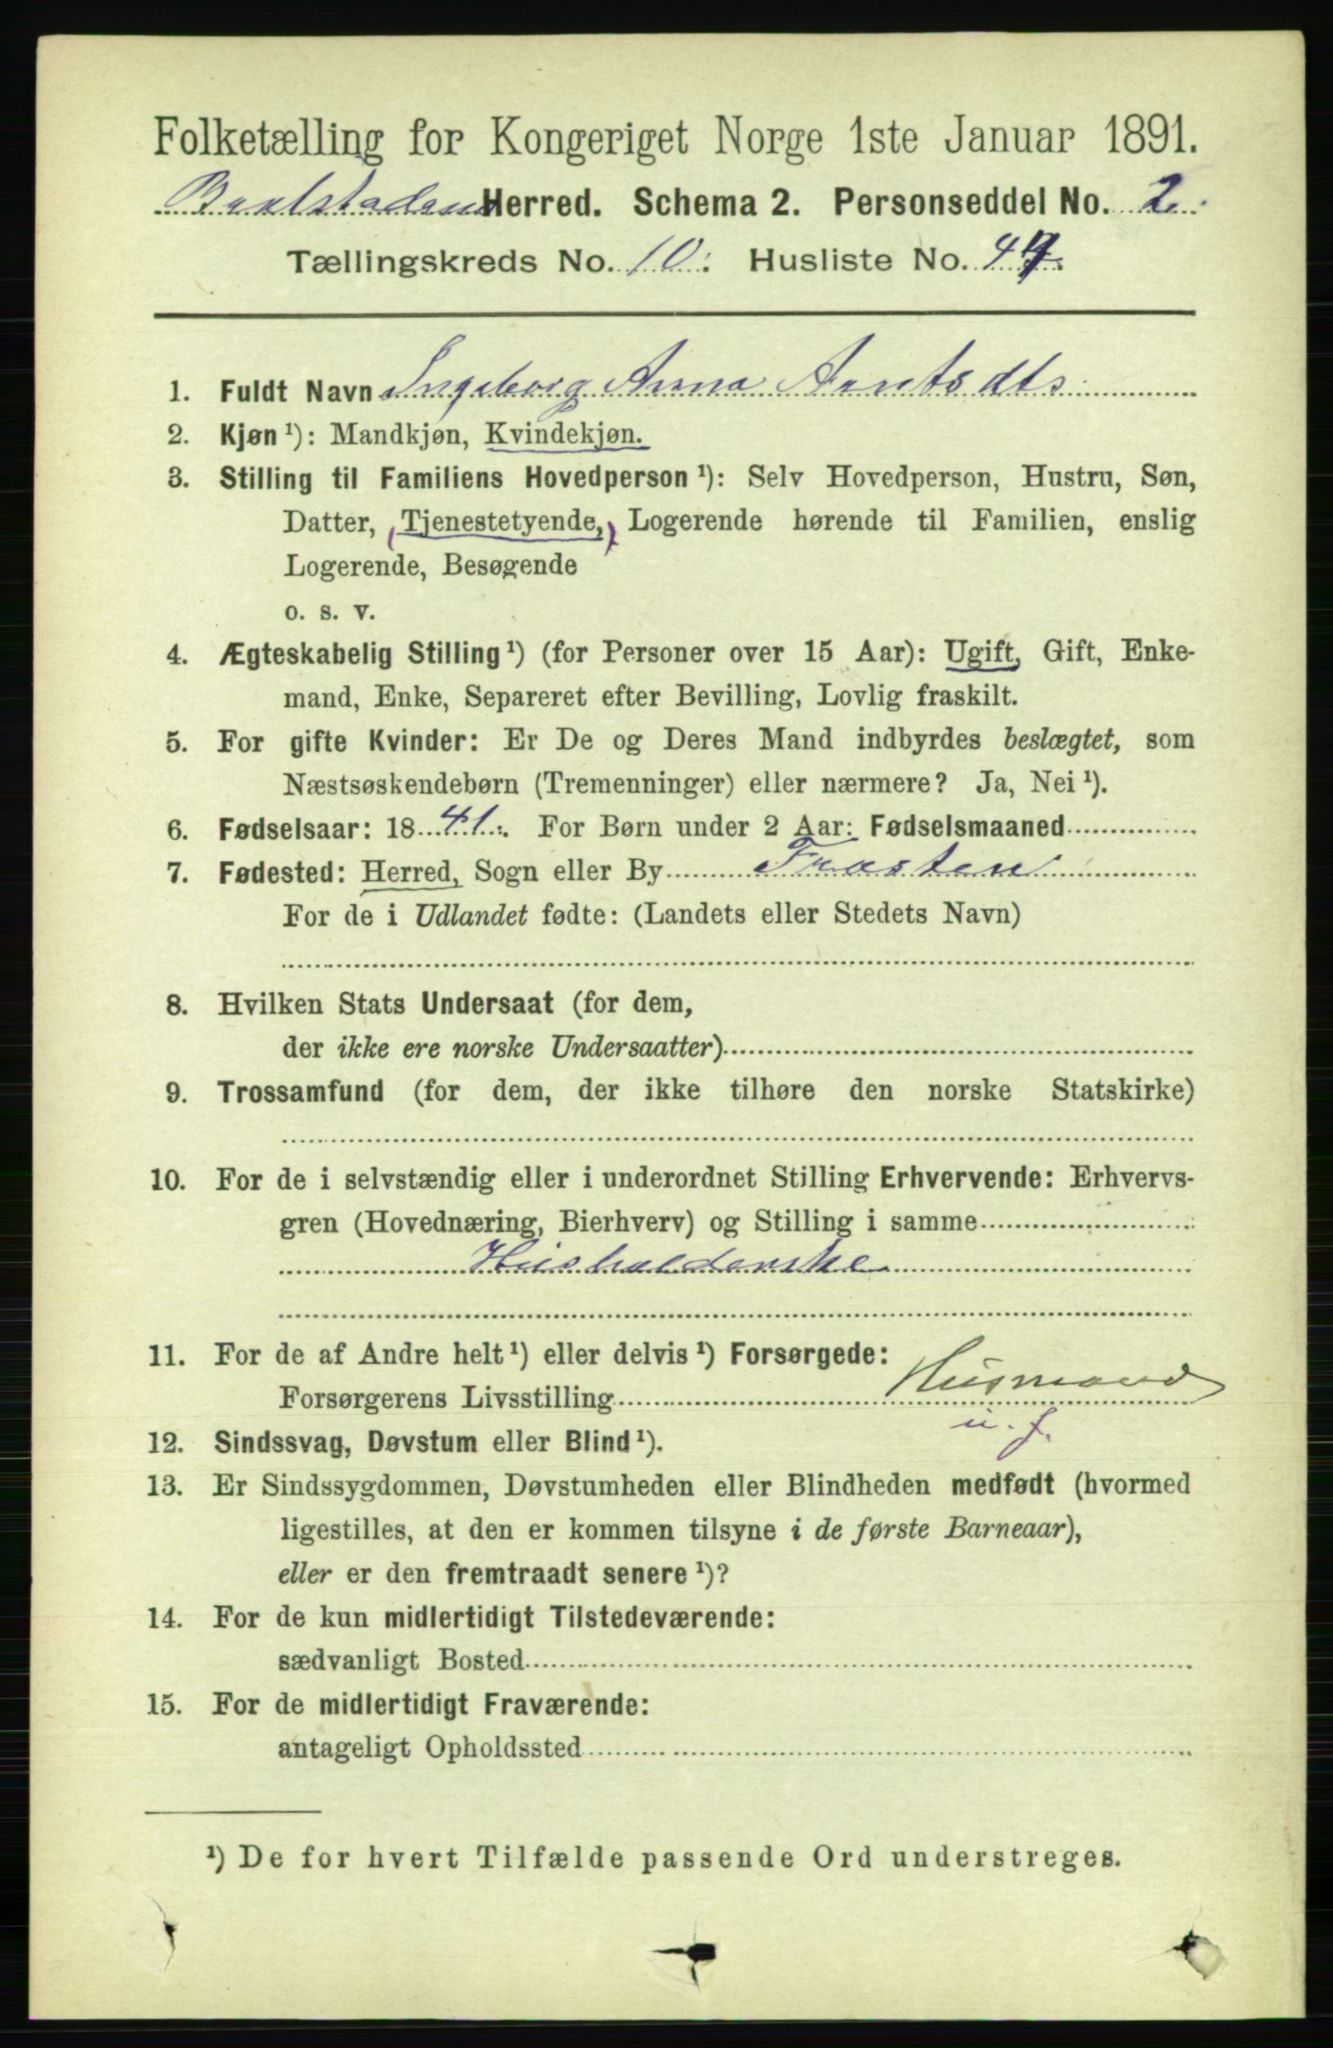 Folketælling for Kongeriget Norge 1ste Januar 1891.
Beitstadens Herred. Schema 2. Personseddel No. 2.
Tællingskreds No. 10. Husliste No. 47.
1. Fuldt Navn Ingeborg Anna Arntsdts.
2. Kjøn ¹): Mandkjøn, Kvindekjøn.
3. Stilling til Familiens Hovedperson ¹): Selv Hovedperson, Hustru, Søn,
Datter, (Tjenestetyende,) Logerende hørende til Familien, enslig
Logerende, Besøgende
o. s. v.
4. Ægteskabelig Stilling ¹) (for Personer over 15 Aar): Ugift, Gift, Enke-
mand, Enke, Separeret efter Bevilling, Lovlig fraskilt.
5. For gifte Kvinder: Er De og Deres Mand indbyrdes beslægtet, som
Næstsøskendebørn (Tremenninger) eller nærmere? Ja, Nei ¹).
6. Fødselsaar: 1841. For Børn under 2 Aar: Fødselsmaaned
7. Fødested: Herred, Sogn eller By Frosten
For de i Udlandet fødte: (Landets eller Stedets Navn)
8. Hvilken Stats Undersaat (for dem,
der ikke ere norske Undersaatter)
9. Trossamfund (for dem, der ikke tilhøre den norske Statskirke)
10. For de i selvstændig eller i underordnet Stilling Erhvervende: Erhvervs-
gren (Hovednæring, Bierhverv) og Stilling i samme
Husholderske
11. For de af Andre helt ¹) eller delvis ¹) Forsørgede:
Forsørgerens Livsstilling Husmand
u. j.
12. Sindssvag, Døvstum eller Blind ¹).
13. Er Sindssygdommen, Døvstumheden eller Blindheden medfødt (hvormed
ligestilles, at den er kommen tilsyne i de første Barneaar),
eller er den fremtraadt senere ¹)?
14. For de kun midlertidigt Tilstedeværende:
sædvanligt Bosted
15. For de midlertidigt Fraværende:
antageligt Opholdssted
¹) De for hvert Tilfælde passende Ord understreges.